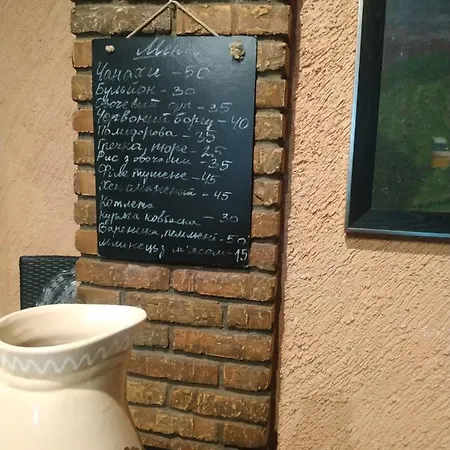 Меню
Чанахи - 50
Бульйон - 30
Овочевий суп - 25
Червоний борщ - 40
Помидорова - 35
Гречка, пюре - 25
Рис з овочами - 35
Філе тушене - 45
Хек смажений - 45
Котлета
куряча ковбаска - 30
Вареники, пельмені - 50
млинець з м'ясом - 15